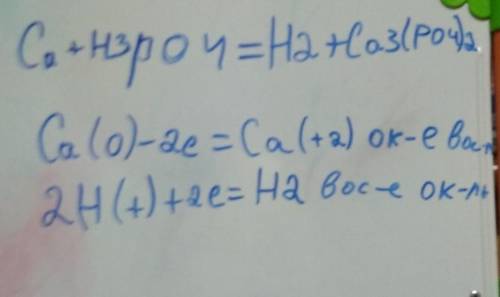 Ca + H3PO4 = H2 + Ca3(PO4)2
Ca(0) - 2e = Ca(+2) ок-е вос-ль
2H(+) + 2e = H2 вос-е ок-ль